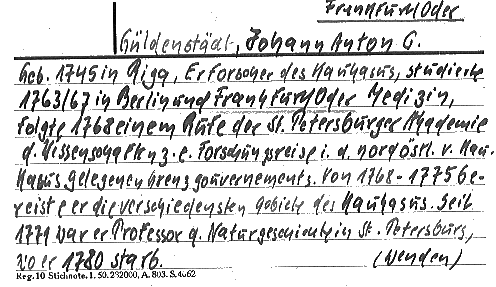 Frankfurt/Oder
Güldenstädt, Johann Anton G.
Geb. 1745 in Riga, Erforscher des Kaukasus, studierte
1763/67 in Berlin und Frankfurt/Oder Medizin,
folgte 1768 einem Rufe der St. Petersburger Akademie
d. Wissenschaften z. e. Forschungsreise i. d. nordöstl. v. Kau-
kasus gelegenen Grenzgouvernements. Von 1768-1775 be-
reiste er die verschiedensten Gebiete des Kaukasus. Seit
1771 war er Professor d. Naturgeschichte in St. Petersburg,
wo er 1780 starb. (Wenden)
Reg. 10 Stichnote. 1. 50. 232000, A. 803. S. 4662